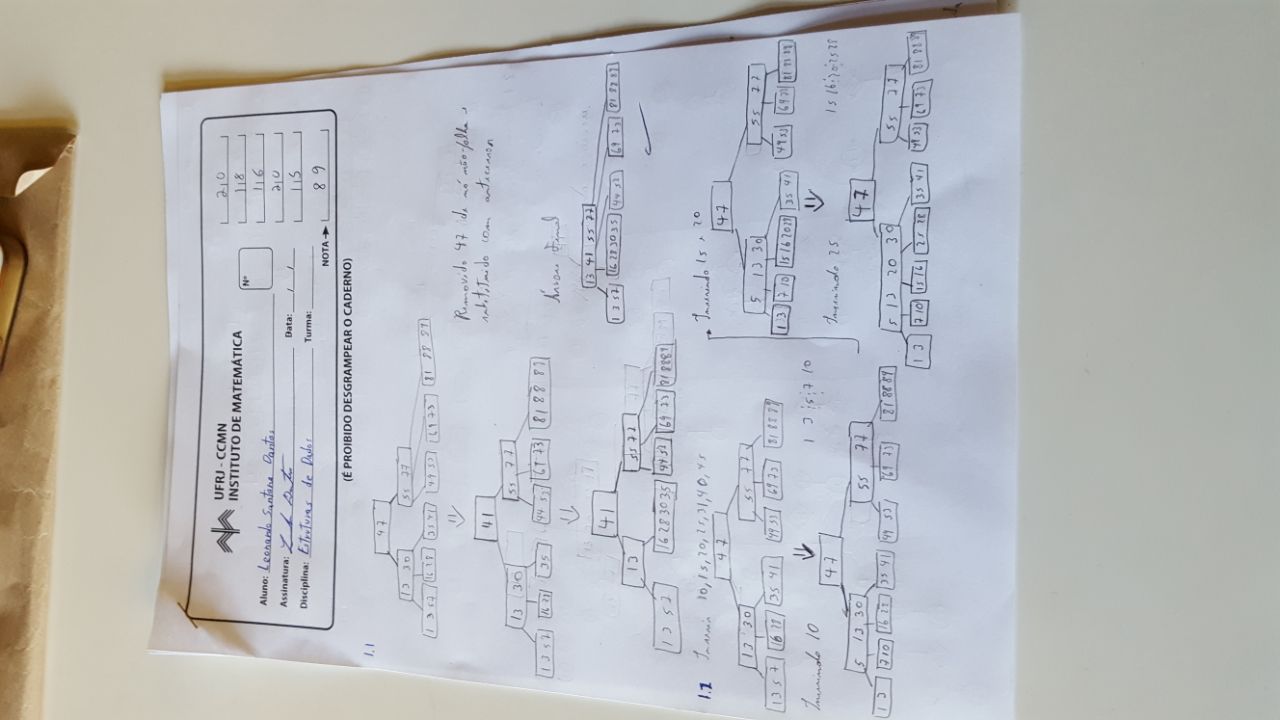 UFRJ - CCMN
INSTITUTO DE MATEMÁTICA
Nº
Aluno: Leonardo Santana Dantas
Assinatura:
Data: / /
Disciplina: Estruturas de Dados
Turma:
2,0
1,8
1,6
2,0
1,5
NOTA → 8 9
(É PROIBIDO DESGRAMPEAR O CADERNO)
1.1
47
13 30 55 77
1 3 5 7 16 28 35 41 49 53 69 73 81 88 89
Removido 47 de nó não-folha e
substituído com antecessor
41
13 30 55 77
1 3 5 7 16 28 35 49 53 69 73 81 88 89
41
13 55 77
1 3 5 7 16 28 30 35 49 53 69 73 81 88 89
Árvore Final
13 41 55 77
1 3 5 7 16 28 30 35 49 53 69 73 81 88 89
1.2 Inserir 10, 15, 20, 25, 31, 40, 45
47
13 30 55 77
1 3 5 7 16 28 35 41 49 53 69 73 81 88 89
Inserindo 10
1 3 5 7 10
47
5 13 30 55 77
1 3 7 10 16 28 35 41 49 53 69 73 81 88 89
Inserindo 15 e 20
47
5 13 30 55 77
1 3 7 10 15 16 20 28 35 41 49 53 69 73 81 88 89
Inserindo 25
15 16 20 25 28
47
5 13 20 30 55 77
1 3 7 10 15 16 25 28 35 41 49 53 69 73 81 88 89